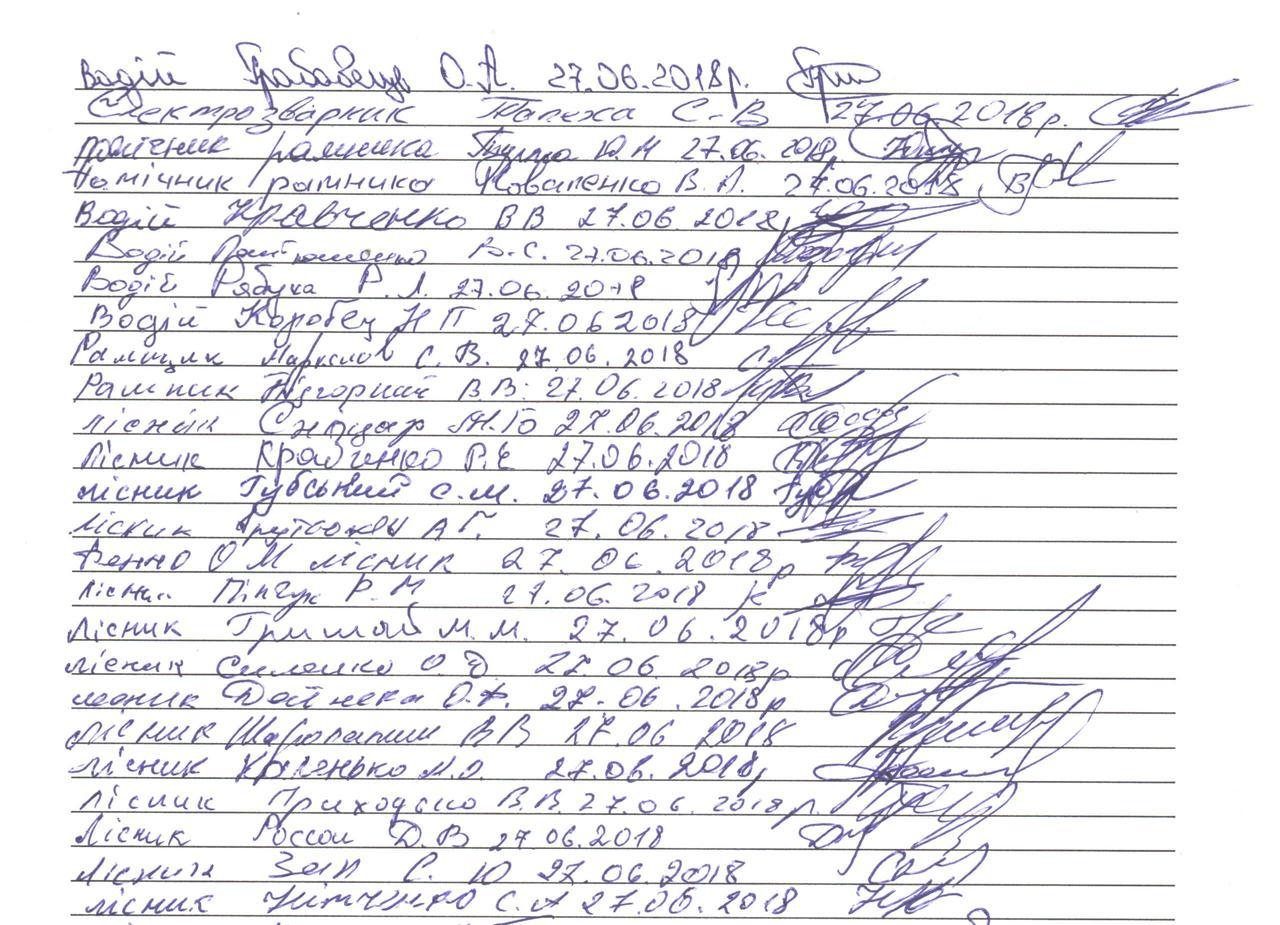 водій Грабовець О.А. 27.06.2018р.
Електрозварник Папеха С.В 27.06.2018р.
помічник рамника Ю.М 27.06.2018
Помічник рамника Коваленко В.А. 27.06.2018
Водій Кравченко ВВ 27.06.2018
Водій В.С. 27.06.2018
Водій Рябуха Р.Л. 27.06.2018
Водій Коробец Н П 27.06 2018
Рамщик С.В. 27.06.2018
Рамник Підгорний В.В. 27.06.2018
лісник Сніцар 27.06.2018
Лісник Кравченко Р.Є 27.06.2018
лісник Губський С.М. 27.06.2018
лісник А Г. 27.06.2018
О М лісник 27.06.2018р
лісник Пінчук Р.М 27.06.2018
Лісник Гримай М.М. 27.06.2018р
лісник Силенко О 27.06 2018р
лісник Дейнека О.Ф. 27.06.2018р
лісник Шарапанич ВВ 27.06 2018
лісник М.О. 27.06.2018
Лісник Приходько В.В. 27.06.2018р.
Лісник Россол Д.В 27.06.2018
лісник С. Ю 27.06.2018
лісник Нітченко С.А 27.06.2018